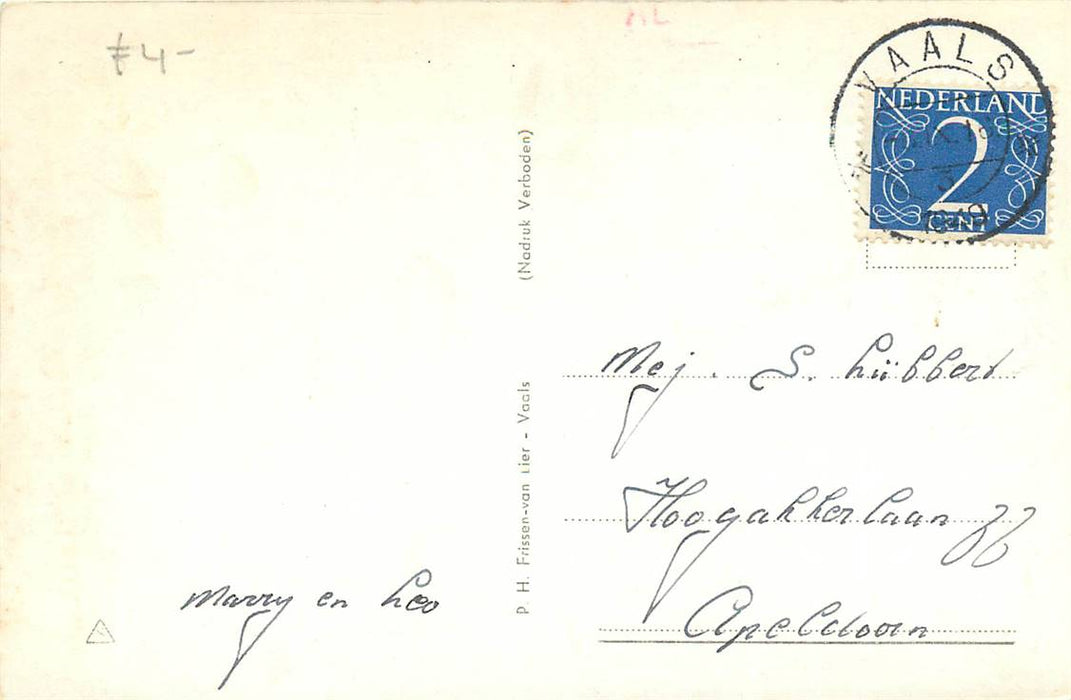 £4-
VAALS
NEDERLAND
2
CENT
1949
(Nadruk Verboden)
P. H. Frissen-van Lier - Vaals
Mej. S. Lübbers
Hoogakkerlaan
Apeldoorn
Marry en Leo